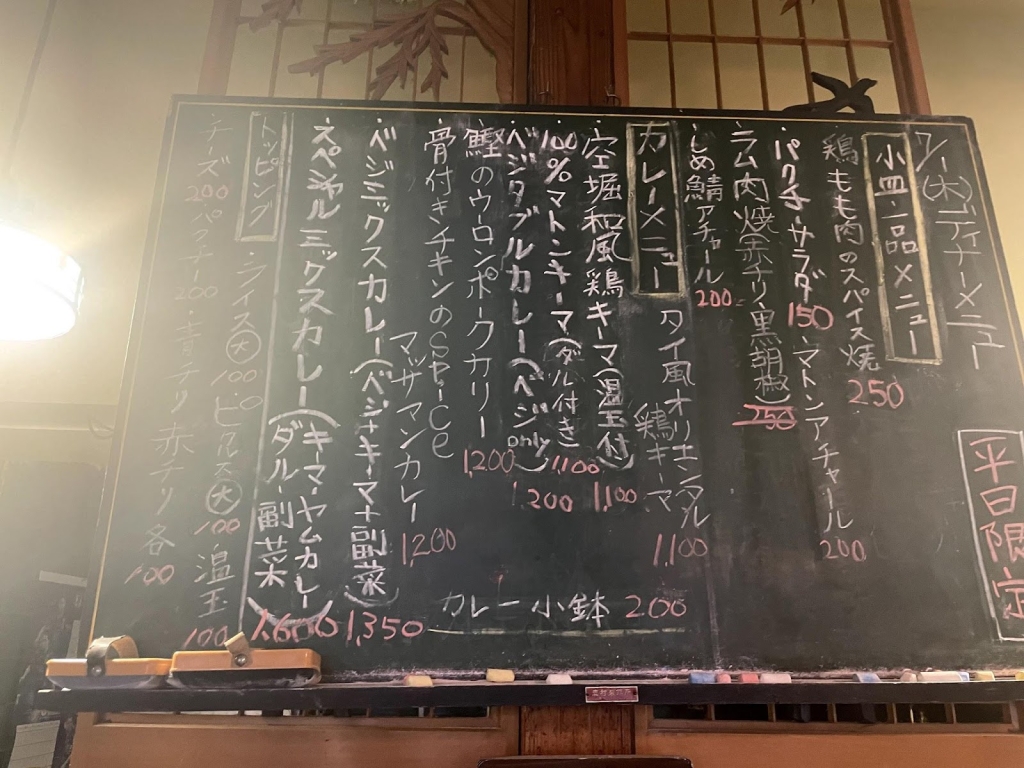 (木)ディナーメニュー
平日限定
小皿一品メニュー
鶏もも肉のスパイス焼 250
・パクチーサラダ 150 ・マトンアチャール 200
ラム肉焼 赤チリ黒胡椒 250
・しめ鯖アチャール 200
カレーメニュー
・タイ風オリエンタル鶏キーマ 1,100
・空堀和風鶏キーマ(温玉付) 1,100
・100%マトンキーマ(ダル付き) 1,100
・ベジタブルカレー(ベジonly) 1,200
・鰹のウーロンポークカリー 1,200
・骨付きチキンのSP.
マッサマンカレー 1,200
・ベジミックスカレー(ベジ+キーマ+副菜) 1,350
・スペシャルミックスカレー(キーマ・ヤムカレーダル・副菜) 1,600
カレー小鉢 200
トッピング
・ライス(大) 100 ・ピクルス(大) 100 ・温玉 100
・チーズ 200 パクチー 200 ・青チリ 赤チリ 各100